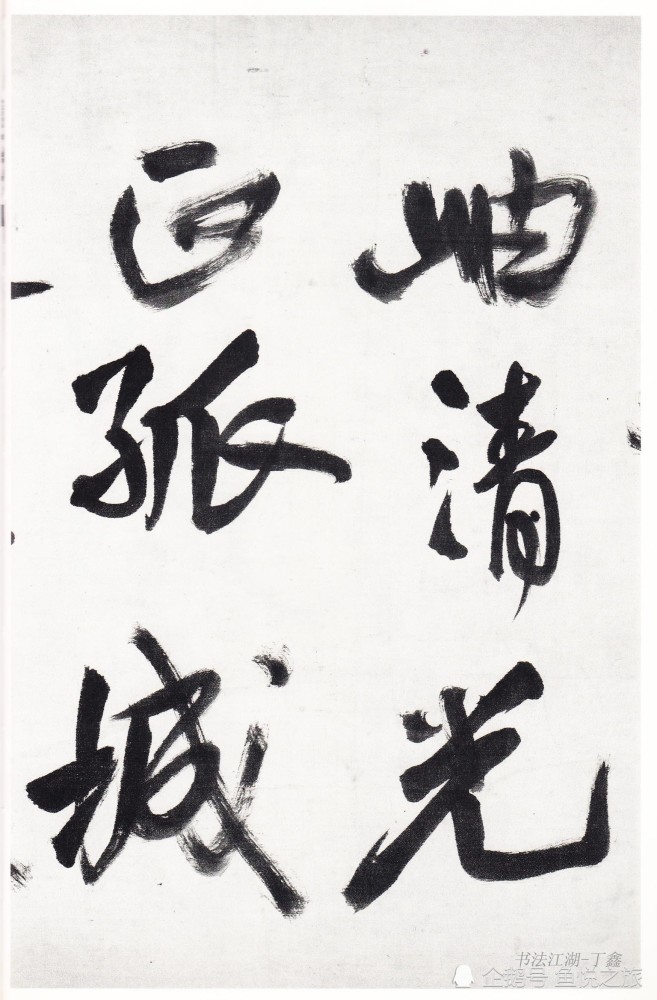 岫清光
孤城
书法江湖-丁鑫
企鹅号 鱼悦之旅